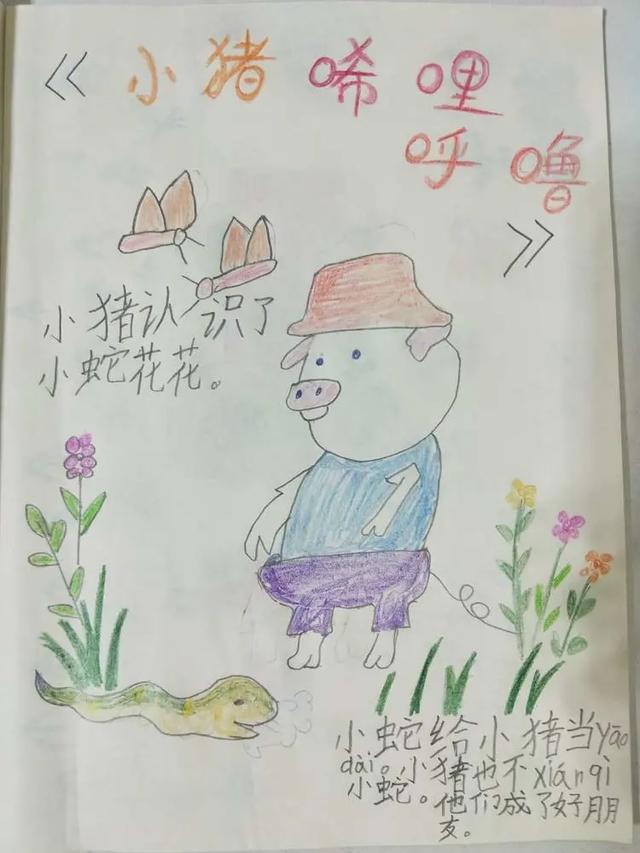 《小猪唏哩
呼噜
》
小猪认识了
小蛇花花。
小蛇给小猪当yāo
dài。小猪也不xiánqì
小蛇。他们成了好朋
友。